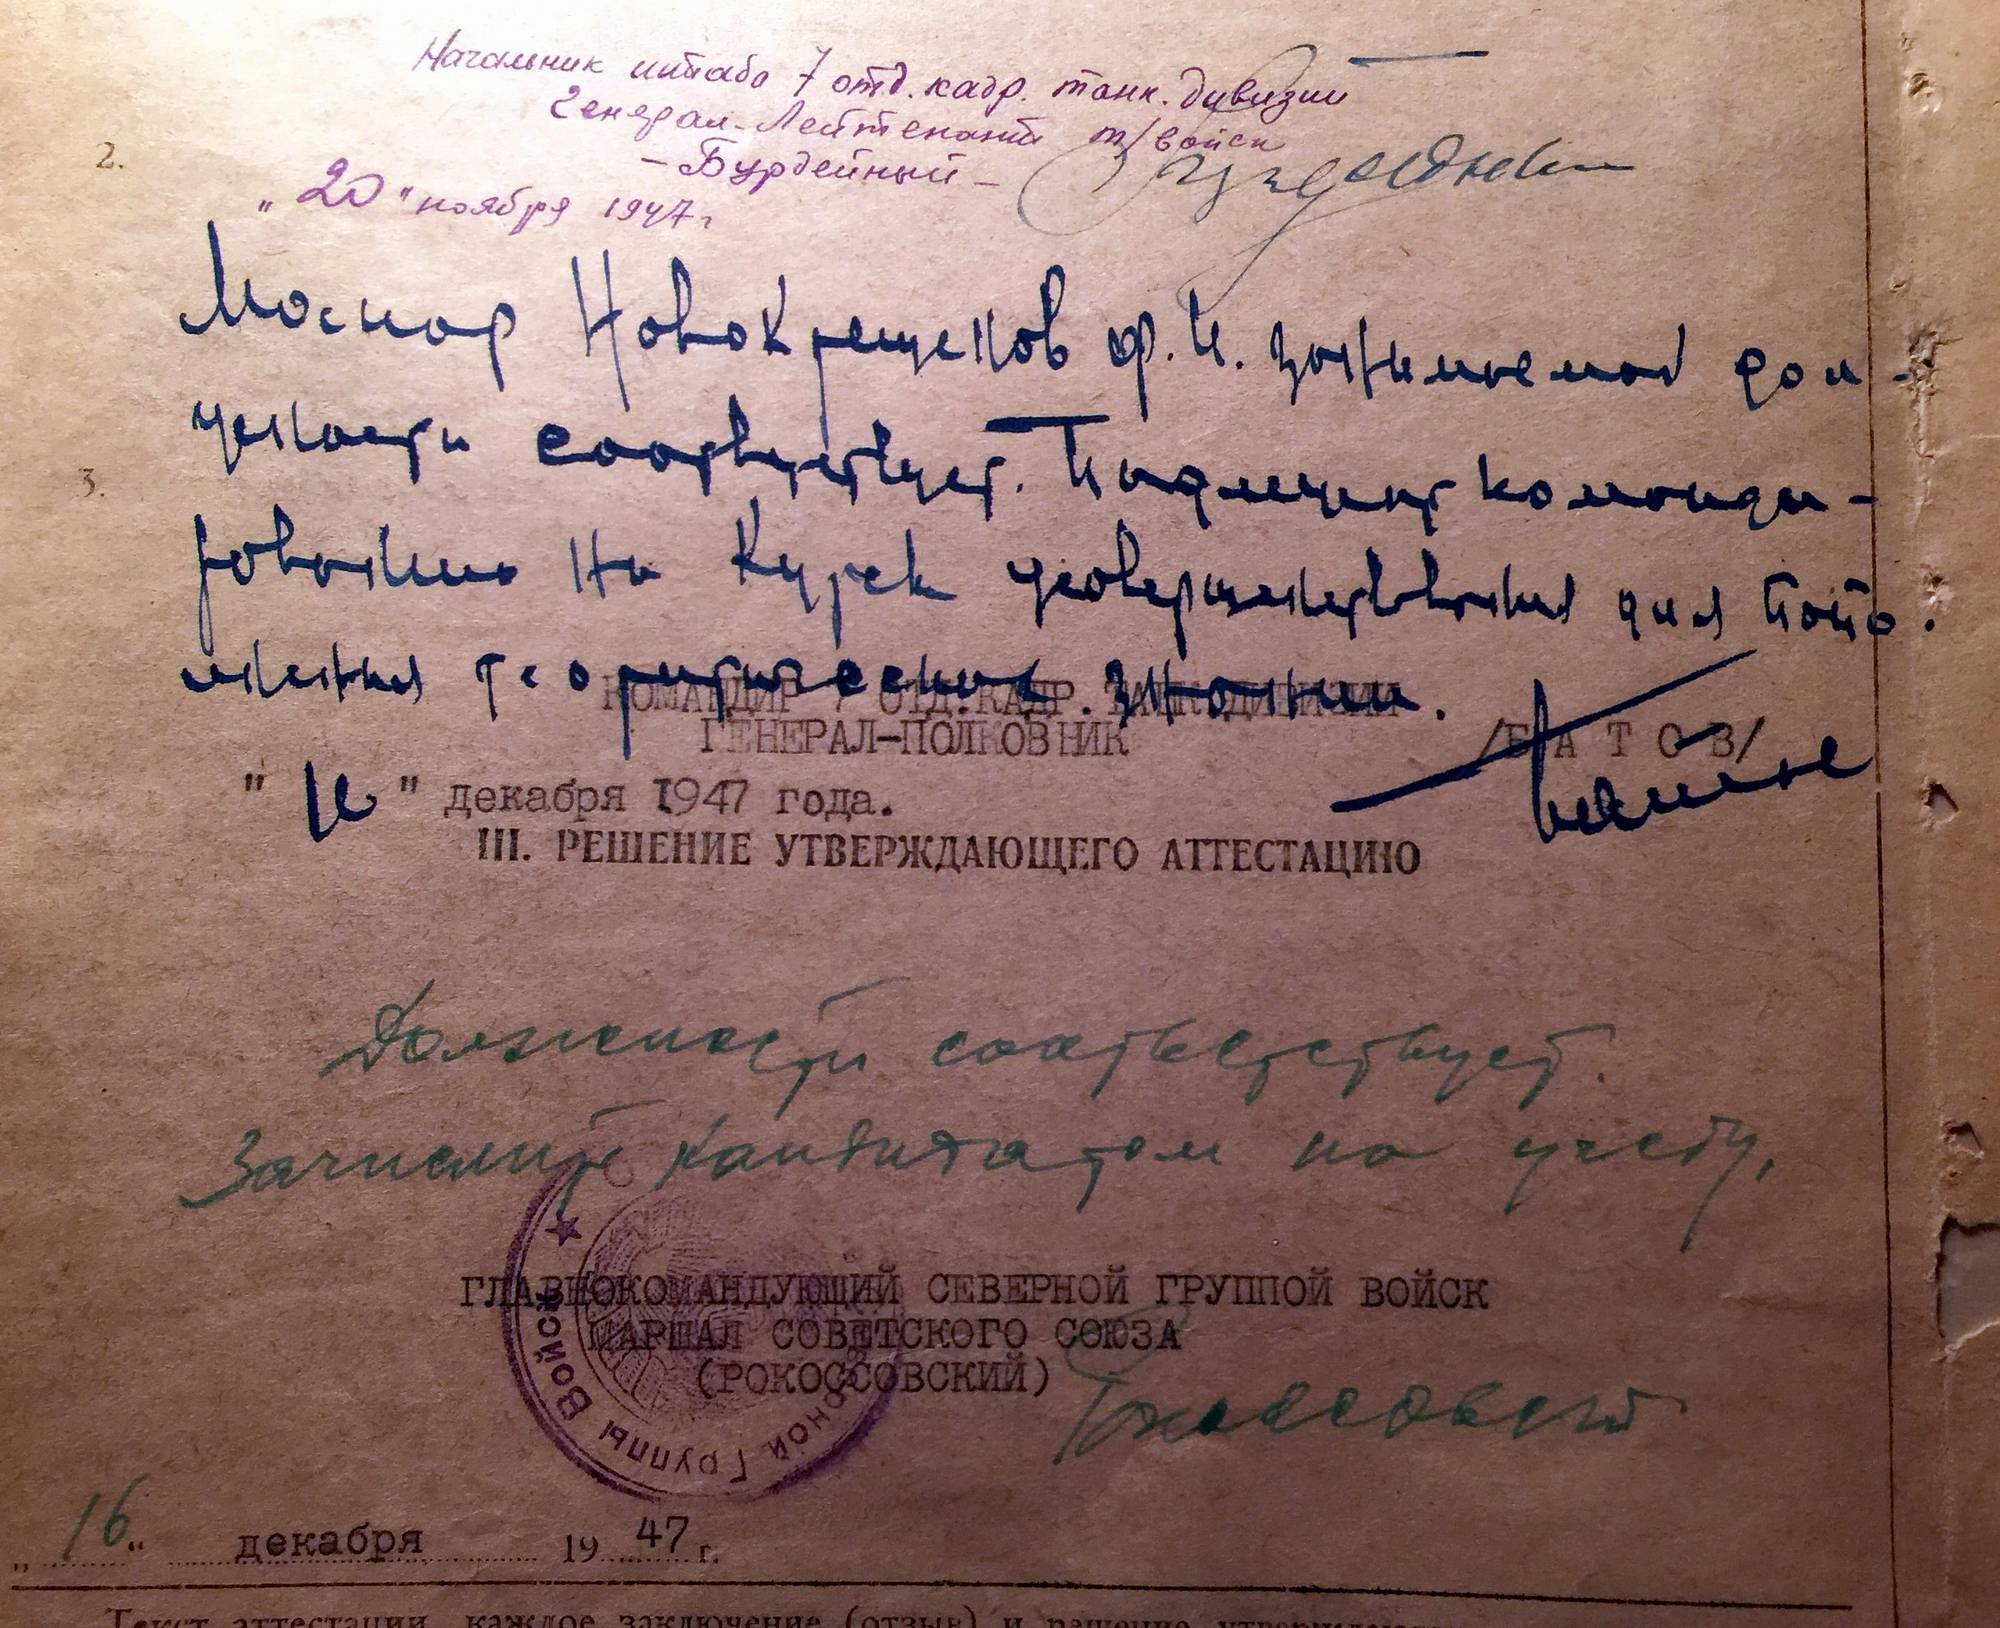 Начальник штаба 7 отд. кадр. танк. дивизии
Генерал-Лейтенант т/войск
2.
- Бурдейный -
„20" ноября 1947 г.
Майор Новокрещенов Ф. И. занимаемой дол-
жности соответствует. Подлежит команди-
3.
рованию на Курсы усовершенствования для попо-
лнения теоритических знаний.
КОМАНДИР 7 ОТД.КАДР.ТАНК.ДИВИЗИИ
ГЕНЕРАЛ-ПОЛКОВНИК /Б А Т О В/
" " декабря 1947 года.
III. РЕШЕНИЕ УТВЕРЖДАЮЩЕГО АТТЕСТАЦИЮ
Должности соответствует.
Зачислить кандидатом на учебу.
ГЛАВНОКОМАНДУЮЩИЙ СЕВЕРНОЙ ГРУППОЙ ВОЙСК
МАРШАЛ СОВЕТСКОГО СОЮЗА
(РОКОССОВСКИЙ)
Рокоссовский
ерной Группы Войск
„16" декабря 1947 г.
Текст аттестации, каждое заключение (отзыв) и решение